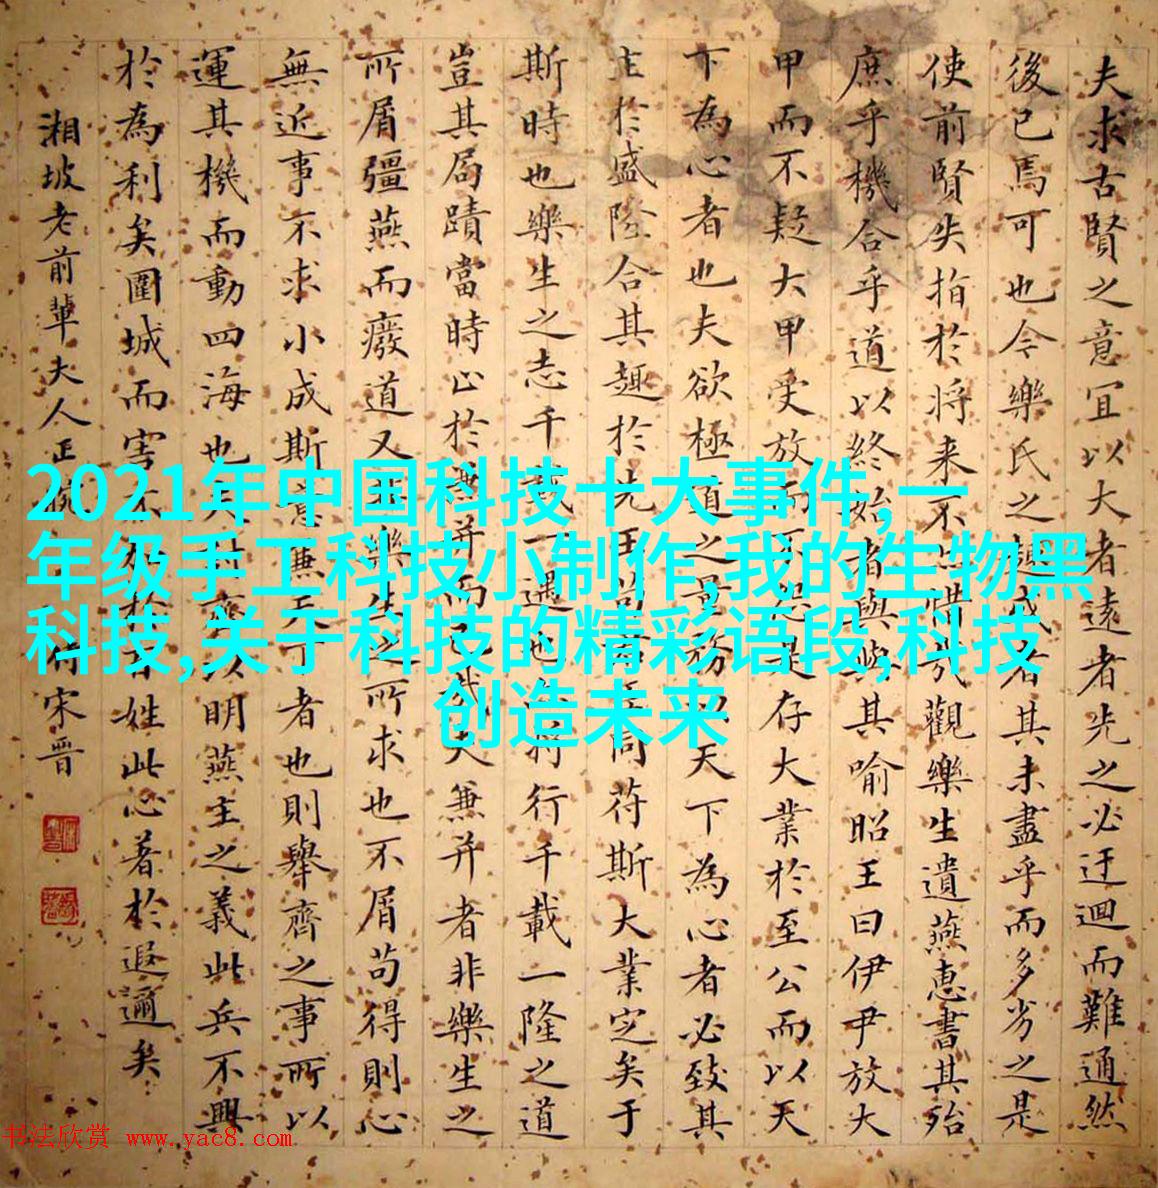 2021年中国科技十大事件,一
年级手工科技小制作,我的生物黑
科技,关于科技的精彩语段,科技
创造未来
夫求古賢之意宜以大者遠者先之必迂迴而難通然
後已焉可也今樂氏之趣或者其未盡乎而多劣之是
使前賢失指於將来不亦惜哉觀樂生遺燕惠書其殆
庶乎機合乎道以終始者與其喻昭王曰伊尹放大
甲而不疑大甲受放而不怨是存大業於至公而以天
下為心者也夫欲極道之量務以天下為心者必致其
主於盛隆合其趣於先王苟君臣同符斯大業定矣于
斯時也樂生之志千載一遇也亦將行千載一隆之道
豈其局蹟當時止於兼并而已哉夫兼并者非樂生之
所屑彊燕而廢道又非樂生之所求也不屑苟得則心
無近事不求小成斯意兼天下者也則舉齊之事所以
運其機而動四海也夫討齊以明燕主之義此兵不興
於為利矣圍城而害不加於百姓此心著於遐邇矣
湘坡老前輩夫人正腕 何宋晋
书法欣赏 www.yac8.com